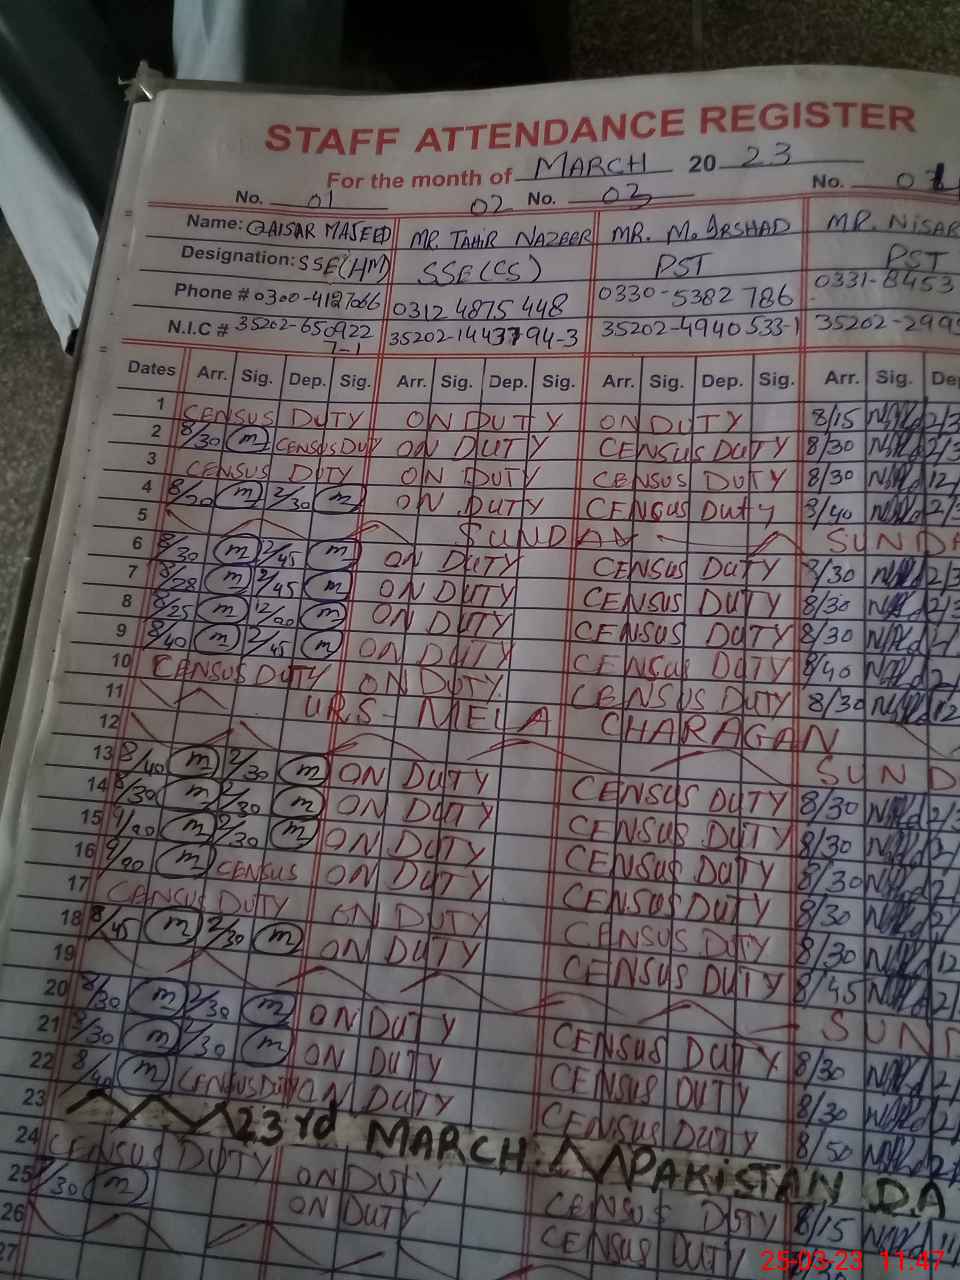 STAFF ATTENDANCE REGISTER
For the month of MARCH 20 23
No. 01 02 No. 03 No.
Name: QAISAR MAJEED MR. TAHIR NAZEER MR. M. ARSHAD MR. NISAR
Designation: SSE(HM) SSE(CS) PST PST
Phone # 0300-4127066 0312 4875 448 0330-5382 786 0331-8453
N.I.C # 35202-650922 7-1 35202-1443794-3 35202-4940533-1 35202-299
Dates Arr. Sig. Dep. Sig. Arr. Sig. Dep. Sig. Arr. Sig. Dep. Sig. Arr. Sig. De
1 CENSUS DUTY ON DUTY ON DUTY 8/15
2 8/30 m CENSUS DUTY ON DUTY CENSUS DUTY 8/30
3 CENSUS DUTY ON DUTY CENSUS DUTY 8/30
4 8/20 m 2/30 m ON DUTY CENSUS Duty 8/40
5 SUNDAY SUNDA
6 8/30 m 2/45 m ON DUTY CENSUS DUTY 8/30
7 8/28 m 2/45 m ON DUTY CENSUS DUTY 8/30
8 8/25 m 12/00 m ON DUTY CENSUS DUTY 8/30
9 8/40 m 2/45 m ON DUTY CENSUS DUTY 8/40
10 CENSUS DUTY ON DUTY CENSUS DUTY 8/30
11 URS- MELA CHARAGAN
12 SUND
13 8/40 m 2/30 m ON DUTY CENSUS DUTY 8/30
14 8/30 m 2/30 m ON DUTY CENSUS DUTY 8/30
15 9/00 m 2/30 m ON DUTY CENSUS DUTY 8/30
16 9/00 m CENSUS ON DUTY CENSUS DUTY 8/30
17 CENSUS DUTY ON DUTY CENSUS DUTY 8/30
18 8/45 m 2/30 m ON DUTY CENSUS DUTY 8/45
19 SUND
20 8/30 m 2/30 m ON DUTY CENSUS DUTY 8/30
21 8/30 m 2/30 m ON DUTY CENSUS DUTY 8/30
22 8/40 m CENSUS DUTY ON DUTY CENSUS DUTY 8/50
23 23rd MARCH PAKISTAN DA
24 CENSUS DUTY ON DUTY CENSUS DUTY 8/15
25 8/30 m ON DUTY CENSUS DUTY
26
27
25-03-23 11:47